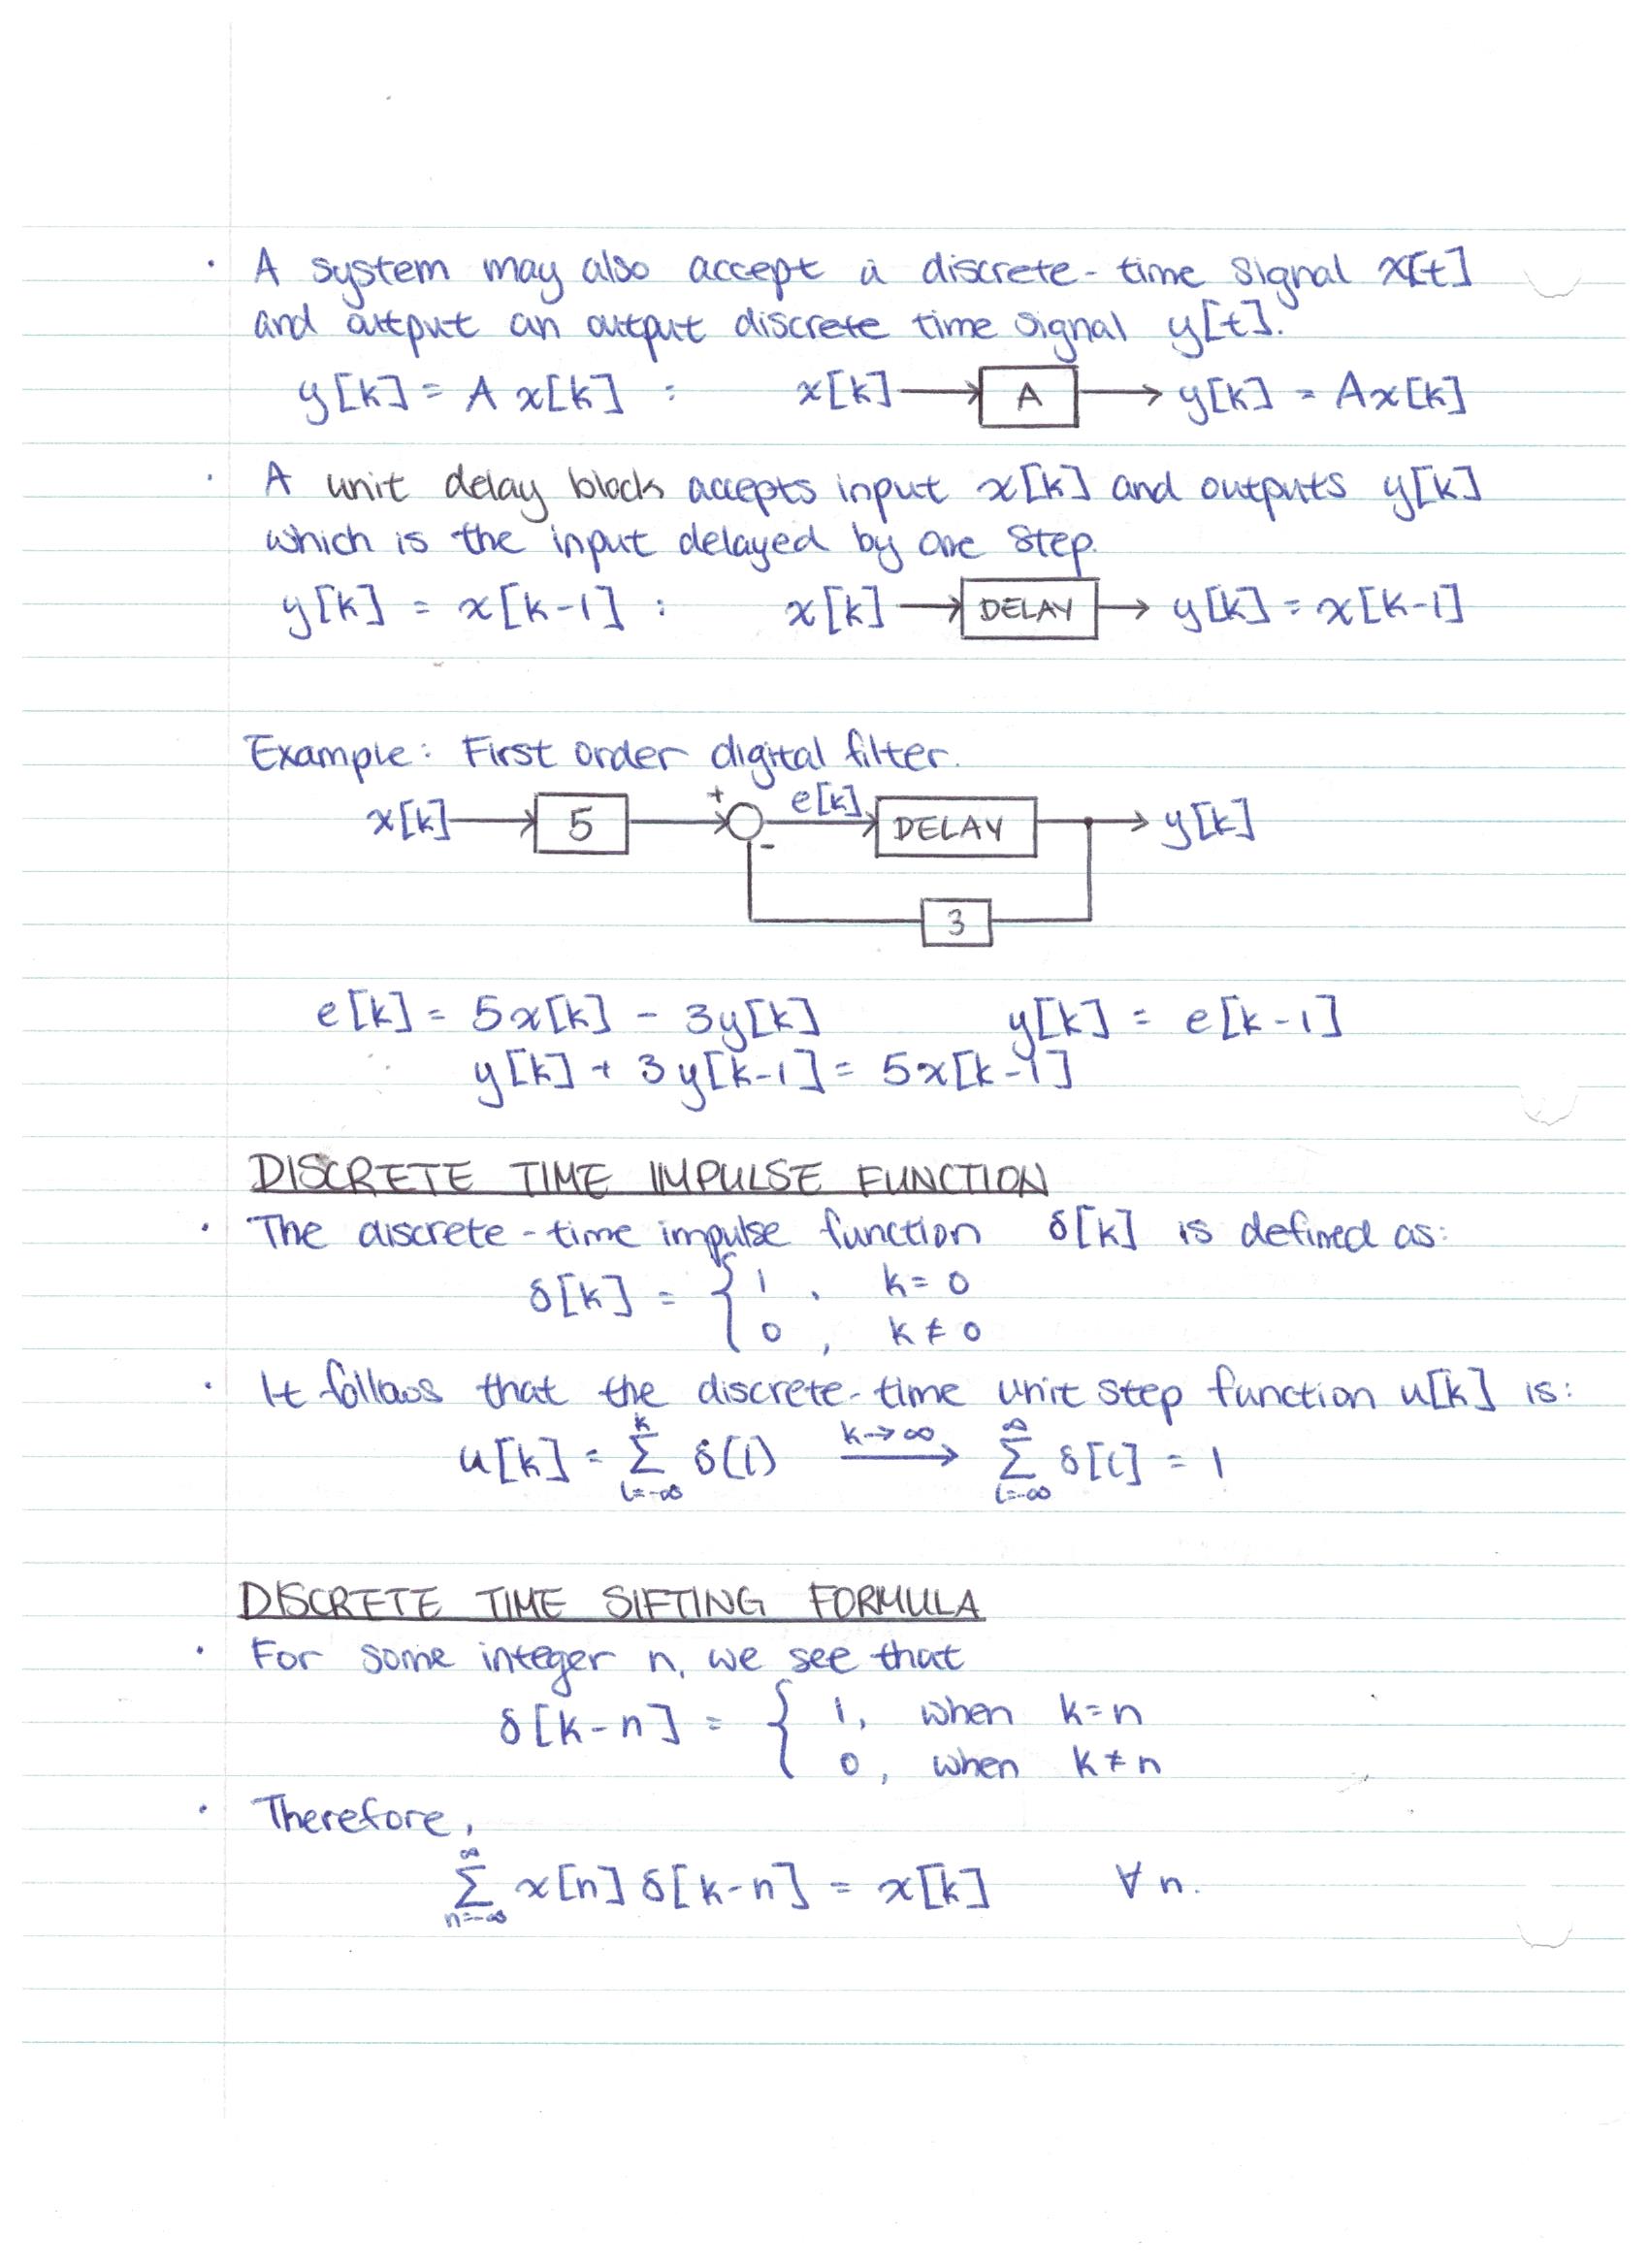 · A system may also accept a discrete-time signal x[t]
and output an output discrete time signal y[t].
y[k] = A x[k] : x[k] → A → y[k] = Ax[k]
· A unit delay block accepts input x[k] and outputs y[k]
which is the input delayed by one step.
y[k] = x[k-1] : x[k] → DELAY → y[k] = x[k-1]
Example: First order digital filter.
x[k] → 5 → + - e[k] → DELAY → y[k]
3
e[k] = 5x[k] - 3y[k] y[k] = e[k-1]
y[k] + 3y[k-1] = 5x[k-1]
DISCRETE TIME IMPULSE FUNCTION
· The discrete-time impulse function δ[k] is defined as:
δ[k] = { 1 , k = 0
0 , k ≠ 0
· It follows that the discrete-time unit step function u[k] is:
u[k] = Σ_{i=-∞}^{k} δ(i) —k→∞→ Σ_{i=-∞}^{∞} δ[i] = 1
DISCRETE TIME SIFTING FORMULA
· For some integer n, we see that
δ[k-n] = { 1, when k=n
0, when k≠n
· Therefore,
Σ_{n=-∞}^{∞} x[n] δ[k-n] = x[k] ∀ n.